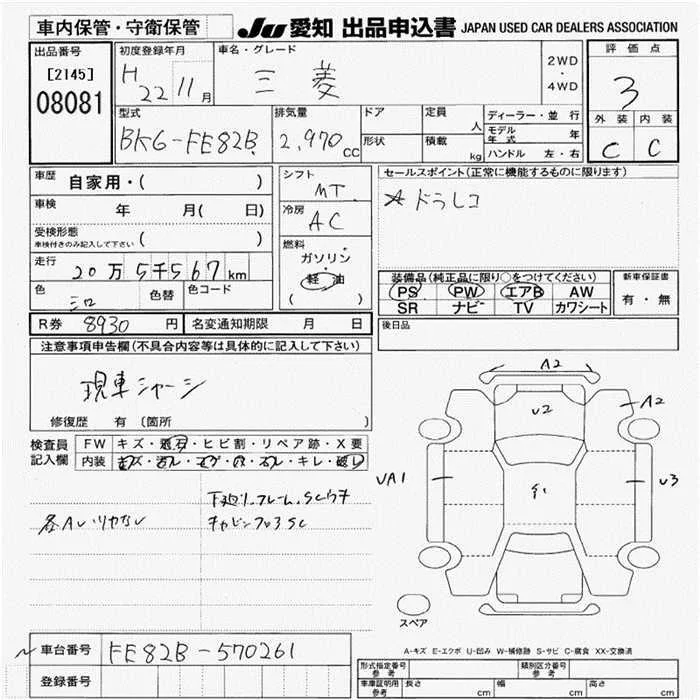 車内保管・守衛保管
JU 愛知 出品申込書 JAPAN USED CAR DEALERS ASSOCIATION
出品番号
[2145]
08081
初度登録年月
H 22 11月
車名・グレード
三菱
2WD
・
4WD
評価点
3
型式
BKG-FE82B
排気量
2,970cc
ドア
形状
定員 人
積載 kg
ディーラー・並行
モデル年式 年
ハンドル 左・右
外装 内装
C C
車歴 自家用・( )
車検 年 月( 日)
受検形態
車検付きのみ記入して下さい ( )
走行 20万5千567km
色 シロ 色替 色コード
シフト
MT
冷房
AC
燃料
ガソリン
・
軽油
( )
セールスポイント(正常に機能するものに限ります)
☆ドラレコ
装備品(純正品に限り○をつけてください)
PS PW エアB AW
SR ナビ TV カワシート
新車保証書
有・無
R券 8930円 名変通知期限 月 日
後日品
注意事項申告欄(不具合内容等は具体的に記入して下さい)
現車シャーシ
修復歴 有 〔箇所 〕
検査員記入欄
FW キズ・飛石・ヒビ割・リペア跡・X要
内装 キズ・汚レ・コゲ・穴・スレ・キレ・破レ
下廻リ、フレーム、SCウチ
各AUツヤナシ
キャビンフロアSC
A2
A2
U2
UA1
S1
U3
スペア
A-キズ E-エクボ U-凹み W-補修跡 S-サビ C-腐食 XX-交換済
車台番号 FE82B-570261
登録番号
形式指定番号 参考
類別区分番号 参考
車庫証明用 参考 長さ cm 幅 cm 高さ cm